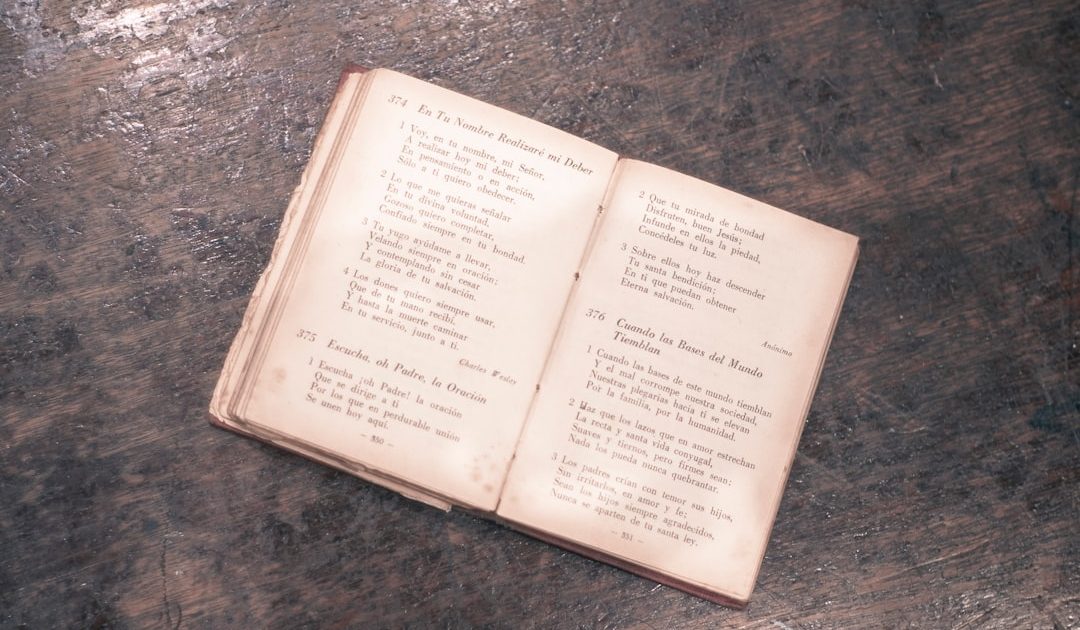 374 En Tu Nombre Realizaré mi Deber
1 Voy, en tu nombre, mi Señor,
A realizar hoy mi deber;
En pensamiento o en acción,
Sólo a ti quiero obedecer.
2 Lo que me quieras señalar
En tu divina voluntad,
Gozoso quiero completar,
Confiado siempre en tu bondad.
3 Tu yugo ayúdame a llevar,
Velando siempre en oración;
Y contemplando sin cesar
La gloria de tu salvación.
4 Los dones quiero siempre usar,
Que de tu mano recibí,
Y hasta la muerte caminar
En tu servicio, junto a ti.
Charles Wesley
375 Escucha, oh Padre, la Oración
1 Escucha ¡oh Padre! la oración
Que se dirige a ti
Por los que en perdurable unión
Se unen hoy aquí.
— 350 —
2 Que tu mirada de bondad
Disfruten, buen Jesús;
Infunde en ellos la piedad,
Concédeles tu luz.
3 Sobre ellos hoy haz descender
Tu santa bendición;
En ti que puedan obtener
Eterna salvación.
Anónimo
376 Cuando las Bases del Mundo
Tiemblan
1 Cuando las bases de este mundo tiemblan
Y el mal corrompe nuestra sociedad,
Nuestras plegarias hacia ti se elevan
Por la familia, por la humanidad.
2 Haz que los lazos que en amor estrechan
La recta y santa vida conyugal,
Suaves y tiernos, pero firmes sean;
Nada los pueda nunca quebrantar.
3 Los padres críen con temor sus hijos,
Sin irritarlos, en amor y fe;
Sean los hijos siempre agradecidos,
Nunca se aparten de tu santa ley.
— 351 —